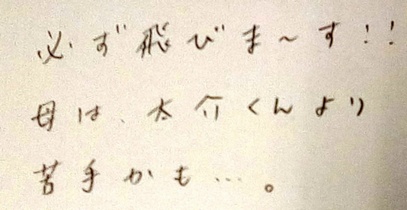 必ず飛びま〜す!!
母は、太介くんより
苦手かも…。